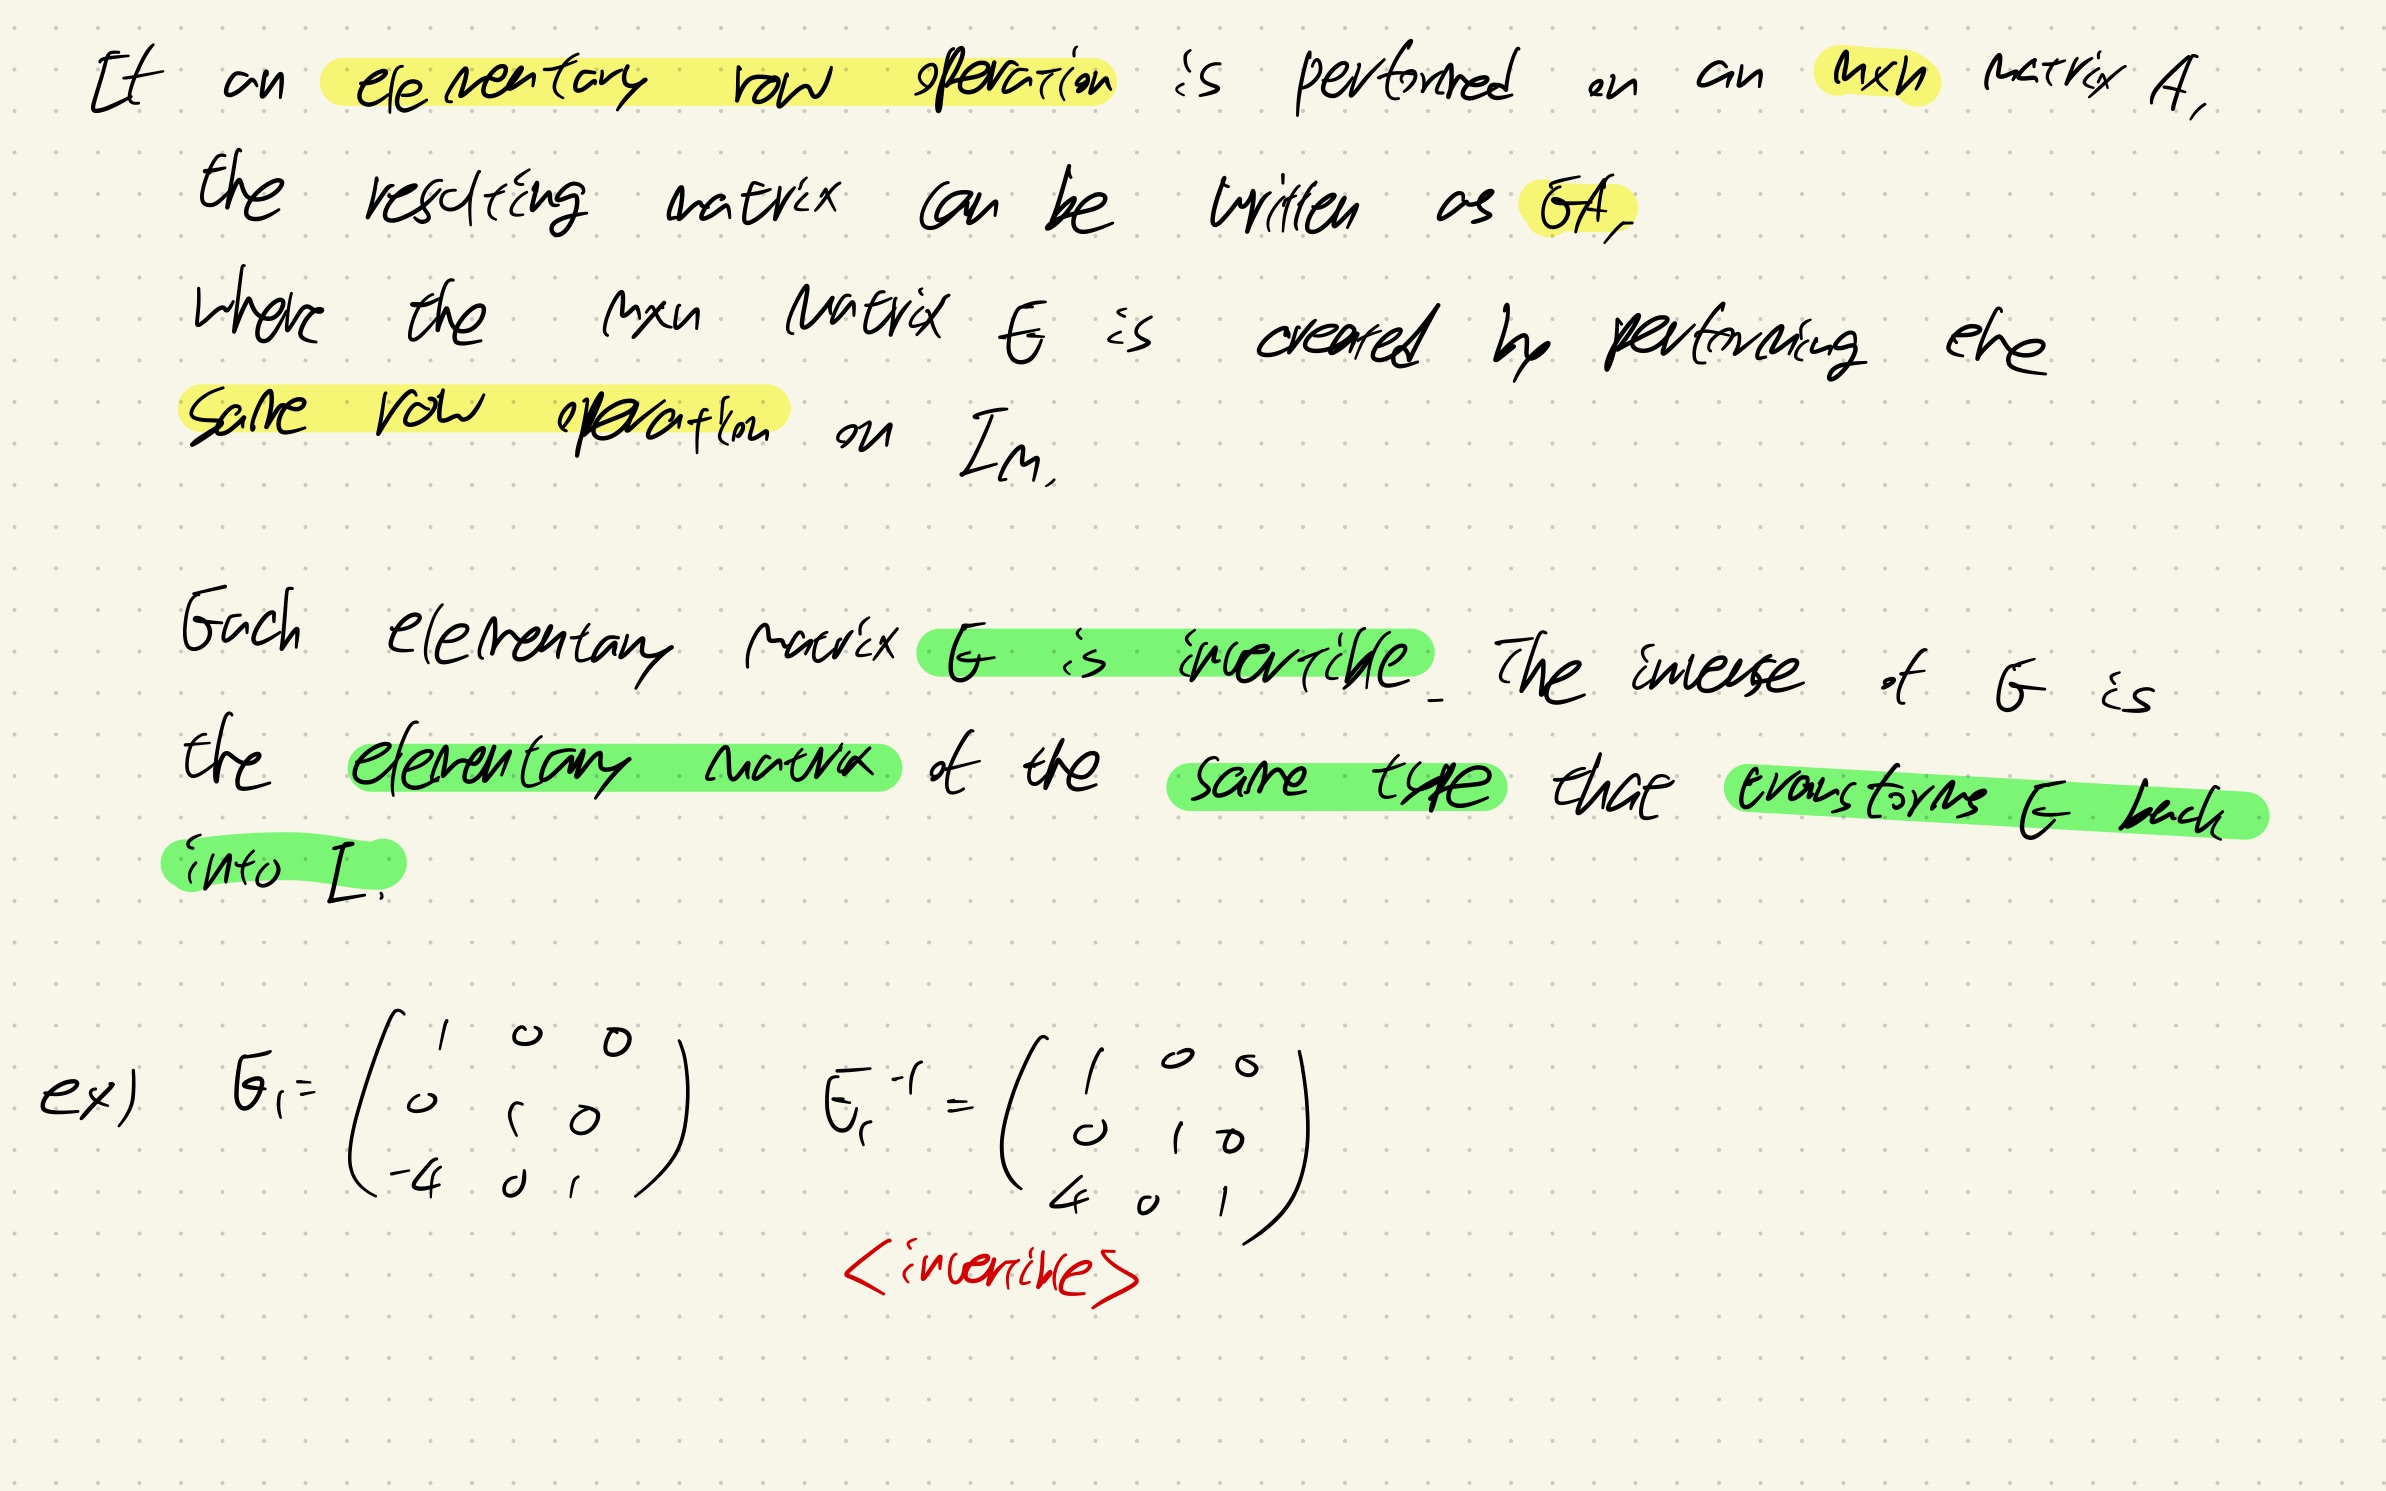 If an elementary row operation is performed on an mxn matrix A,
the resulting matrix can be written as EA,
where the mxn matrix E is created by performing the
same row operation on Im.
Each elementary matrix E is invertible. The inverse of E is
the elementary matrix of the same type that transforms E back
into I.
ex) E1 = ( 1 0 0 E1^-1 = ( 1 0 0
0 1 0 0 1 0
-4 0 1 ) 4 0 1 )
<invertible>